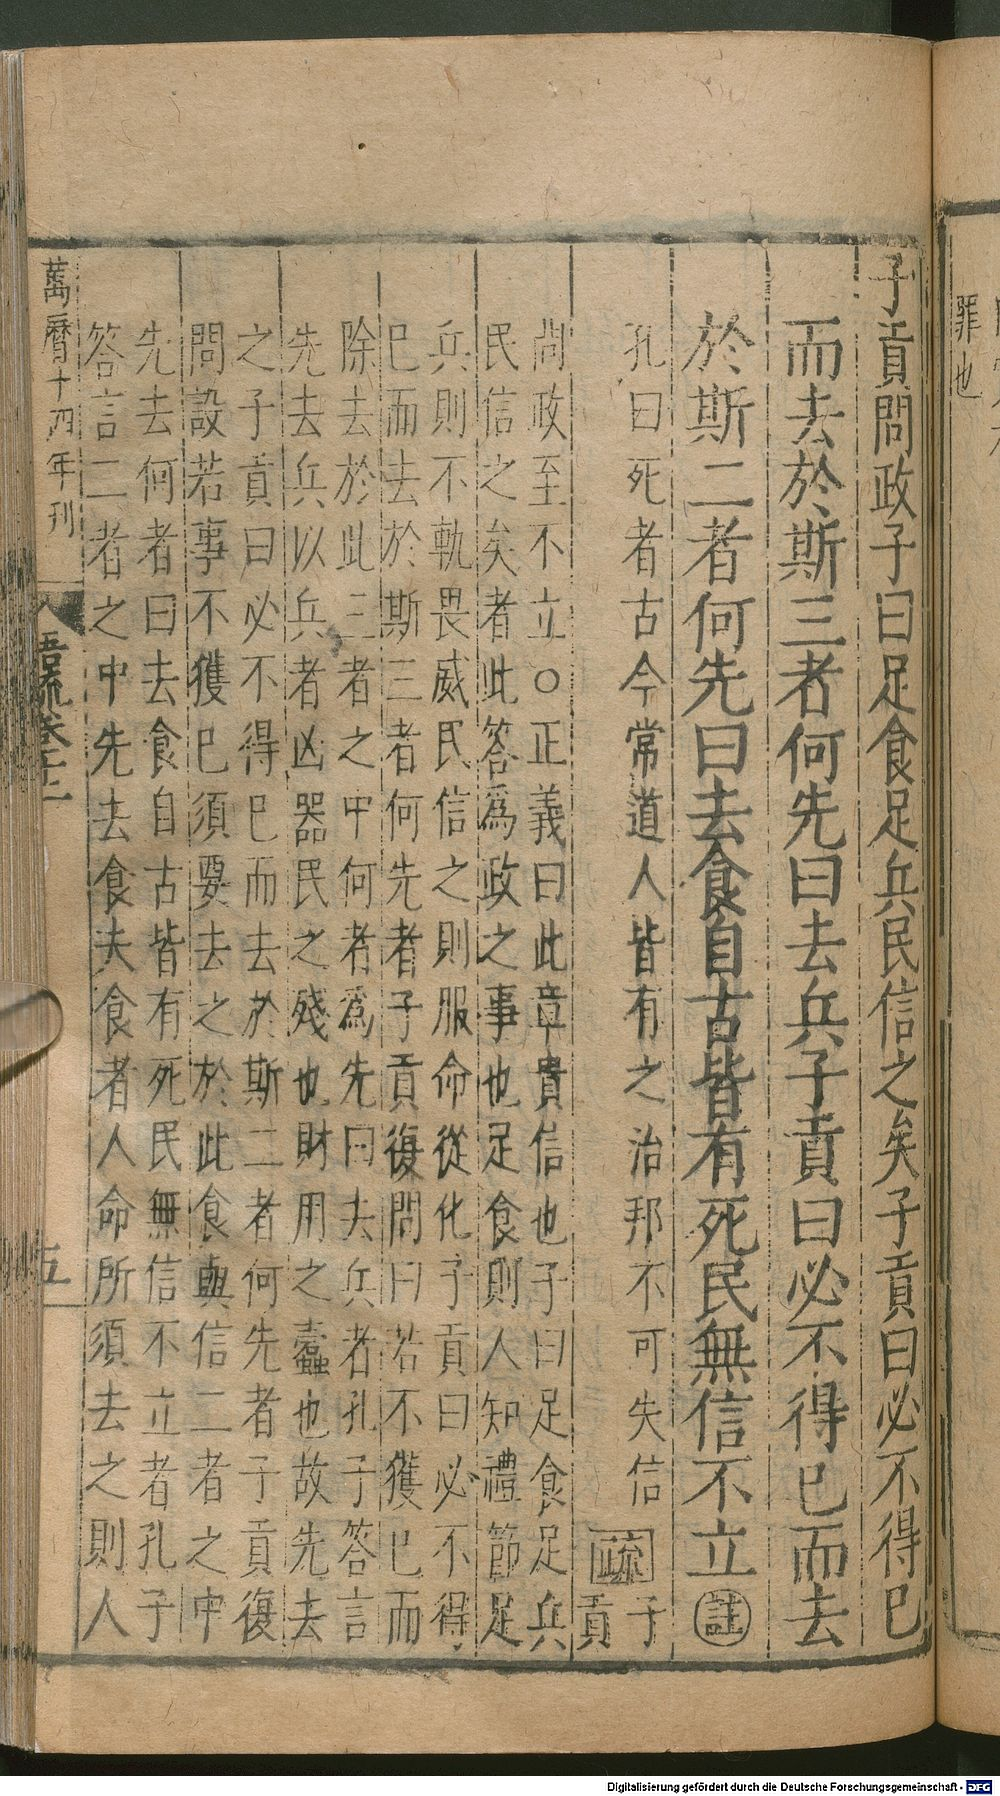 罪也
子貢問政子曰足食足兵民信之矣子貢曰必不得已
而去於斯三者何先曰去兵子貢曰必不得已而去
於斯二者何先曰去食自古皆有死民無信不立註
孔曰死者古今常道人皆有之治邦不可失信疏子
貢
問政至不立○正義曰此章貴信也子曰足食足兵
民信之矣者此答爲政之事也足食則人知禮節足
兵則不軌畏威民信之則服命從化子貢曰必不得
已而去於斯三者何先者子貢復問曰若不獲已而
除去於此三者之中何者爲先曰去兵者孔子答言
先去兵以兵者凶器民之殘也財用之蠧也故先去
之子貢曰必不得已而去於斯二者何先者子貢復
問設若事不獲已須要去之於此食與信二者之中
先去何者曰去食自古皆有死民無信不立者孔子
答言二者之中先去食夫食者人命所須去之則人
萬曆十四年刊
語疏卷十二
五
Digitalisierung gefördert durch die Deutsche Forschungsgemeinschaft - DFG